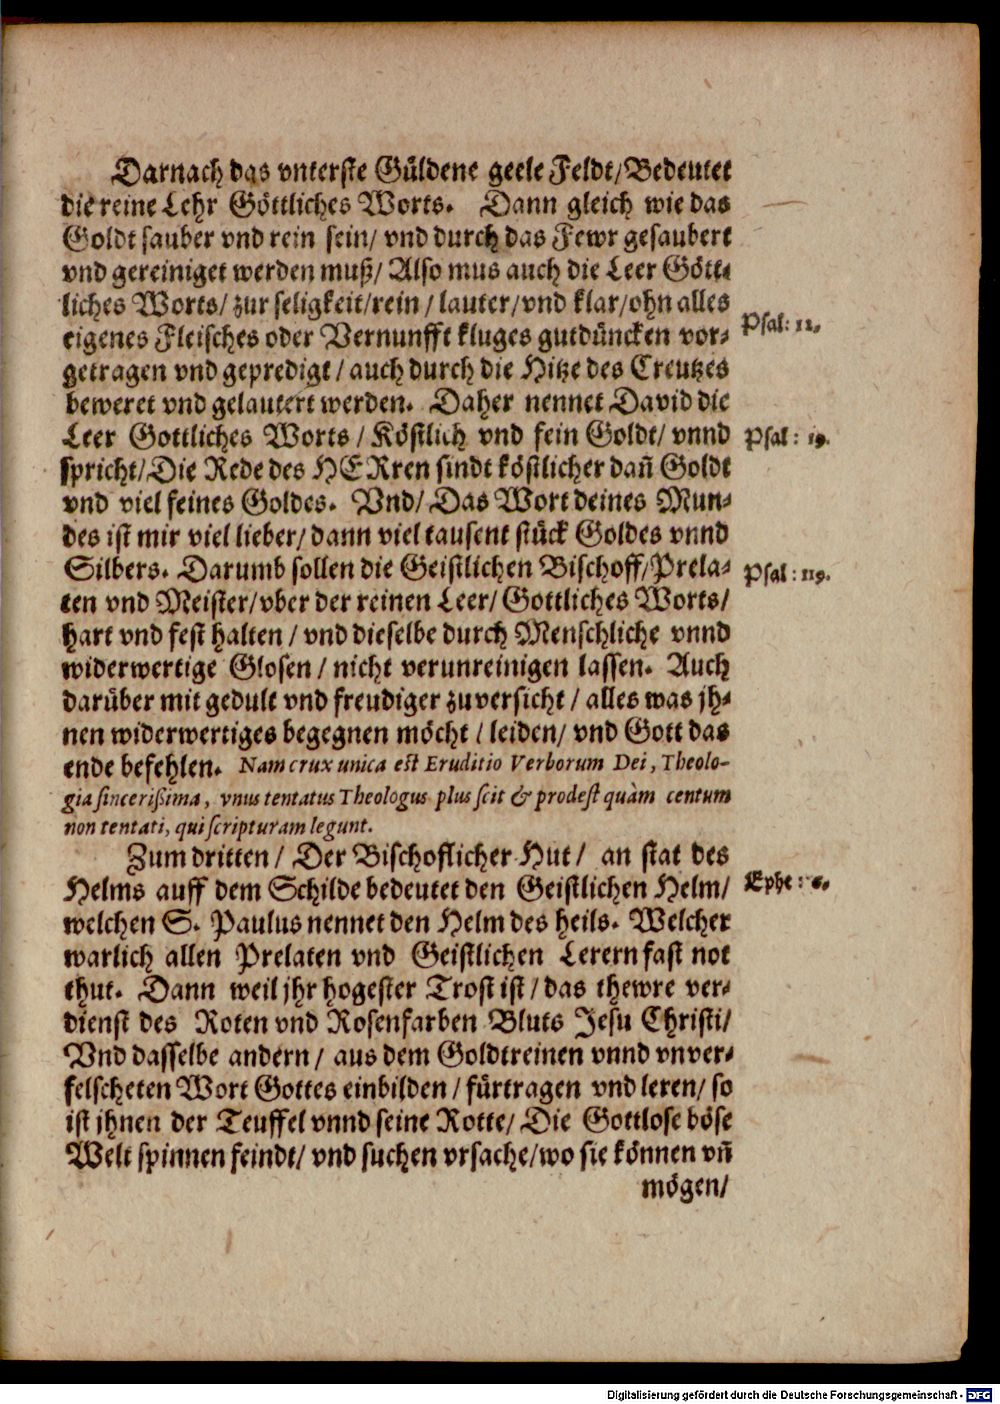 Darnach das vnterste Güldene geele Feldt/Bedeutet
die reine Lehr Göttliches Worts. Dann gleich wie das
Goldt sauber vnd rein sein/ vnd durch das Fewr gesaubert
vnd gereiniget werden muß/ Also mus auch die Leer Gött-
liches Worts/ zur seligkeit/rein/ lauter/vnd klar/ohn alles
eigenes Fleisches oder Vernunfft kluges gutdüncken vor-
Psal: 12.
getragen vnd gepredigt/ auch durch die Hitze des Creutzes
beweret vnd gelautert werden. Daher nennet David die
Leer Gottliches Worts/ Köstlich vnd fein Goldt/ vnnd
Psal: 19.
spricht/Die Rede des HERren sindt köstlicher dañ Goldt
vnd viel feines Goldes. Vnd/ Das Wort deines Mun-
des ist mir viel lieber/ dann viel tausent stück Goldes vnnd
Silbers. Darumb sollen die Geistlichen Bischoff/Prela-
Psal: 119.
ten vnd Meister/vber der reinen Leer/ Gottliches Worts/
hart vnd fest halten/ vnd dieselbe durch Menschliche vnnd
widerwertige Glosen/ nicht verunreinigen lassen. Auch
darüber mit gedult vnd freudiger zuversicht/ alles was jh-
nen widerwertiges begegnen möcht/ leiden/ vnd Gott das
ende befehlen. Nam crux unica est Eruditio Verborum Dei, Theolo-
gia sincerißima, vnus tentatus Theologus plus scit & prodest quàm centum
non tentati, qui scripturam legunt.
Zum dritten/ Der Bischoflicher Hut/ an stat des
Helms auff dem Schilde bedeutet den Geistlichen Helm/
Ephe: 6.
welchen S. Paulus nennet den Helm des heils. Welcher
warlich allen Prelaten vnd Geistlichen Lerern fast not
thut. Dann weil jhr hogester Trost ist/ das thewre ver-
dienst des Roten vnd Rosenfarben Bluts Jesu Christi/
Vnd dasselbe andern/ aus dem Goldtreinen vnnd vnver-
felscheten Wort Gottes einbilden/ fürtragen vnd leren/ so
ist jhnen der Teuffel vnnd seine Rotte/ Die Gottlose böse
Welt spinnen feindt/ vnd suchen vrsache/wo sie können vñ
mögen/
Digitalisierung gefördert durch die Deutsche Forschungsgemeinschaft - DFG